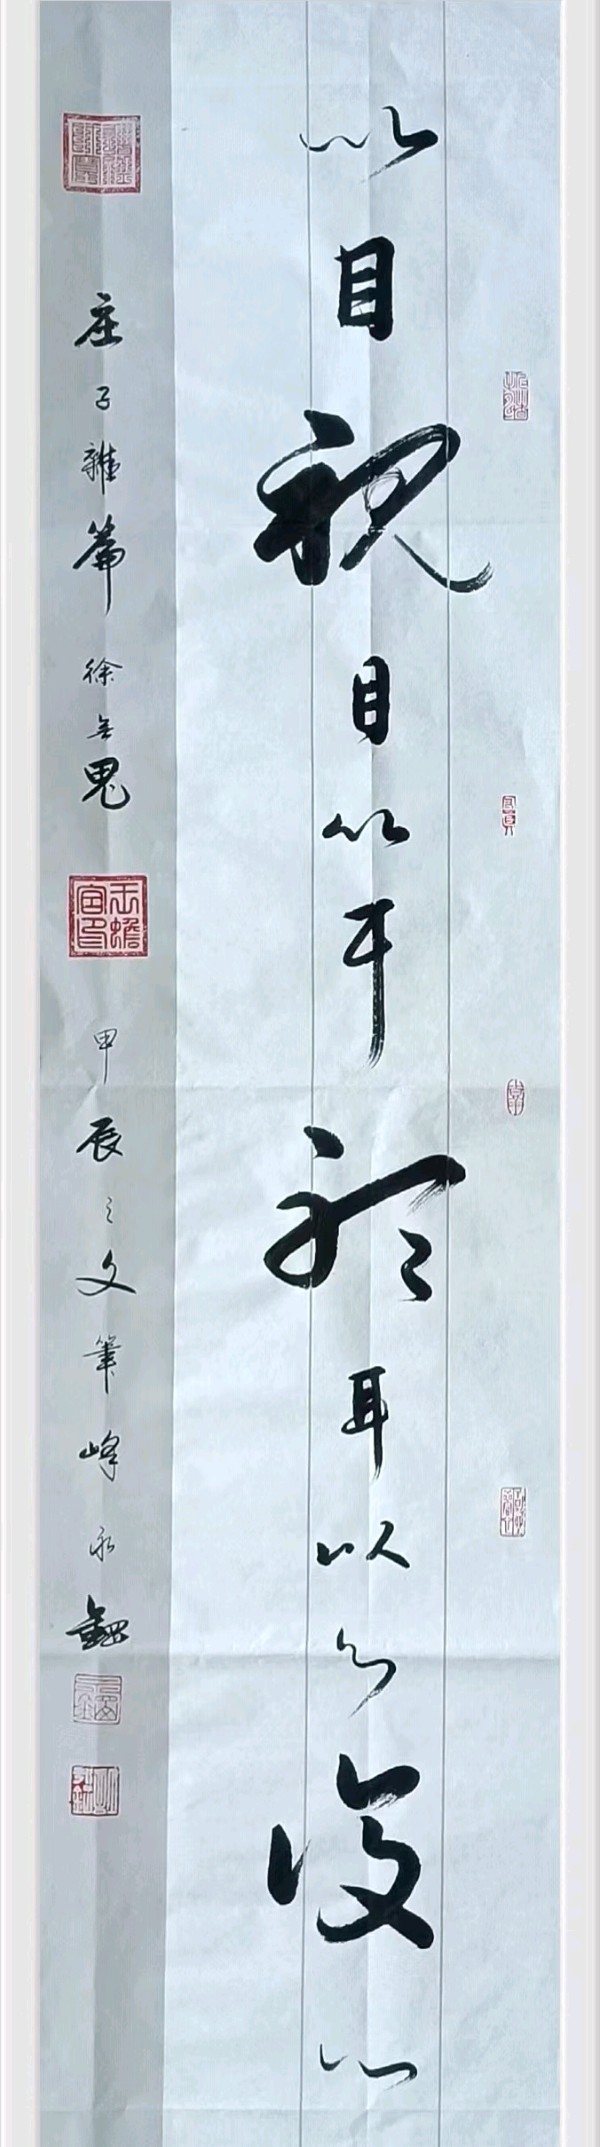 以目视目以耳听耳以心复心
庄子雜篇徐无鬼
甲辰之文筆峰永